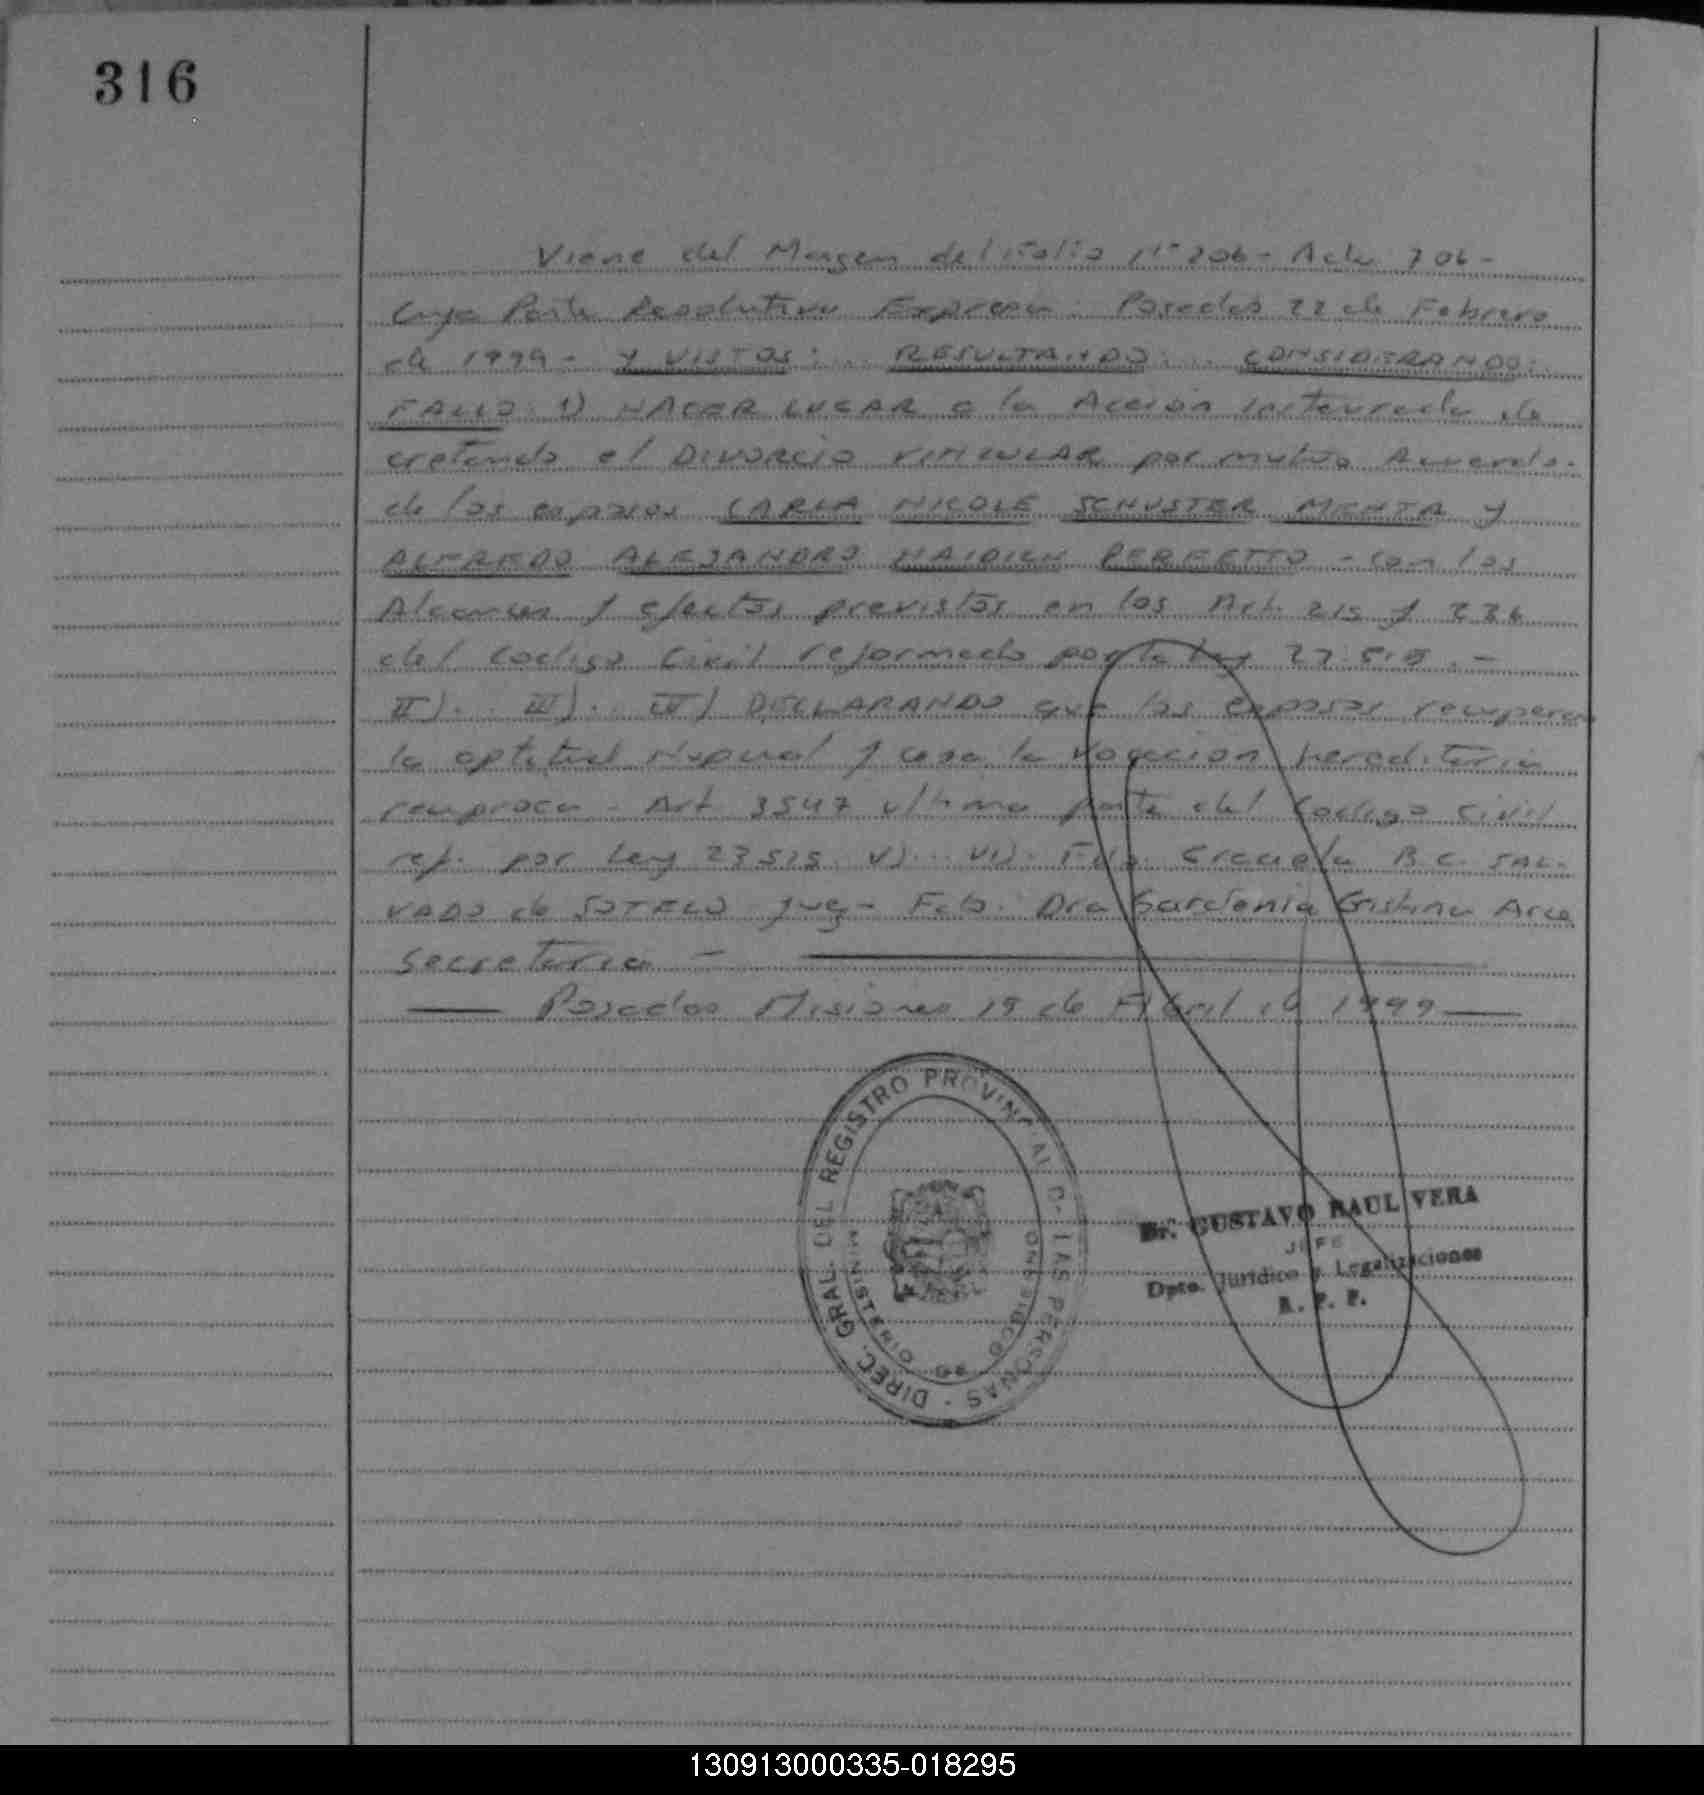 316
Viene del Margen del Folio Nº 206 - Acta 206 -
Cuya Parte Resolutiva Expresa: Posadas 22 de Febrero
de 1999 - Y VISTOS: .. RESULTANDO: .. CONSIDERANDO:
FALLO: 1) HACER LUGAR a la Acción instaurada de
cretando el DIVORCIO VINCULAR por mutuo Acuerdo.
de los esposos CARLA NICOLE SCHUSTER MENTA y
ALFREDO ALEJANDRO HAIDICH PERFETTO - con los
Alcances y efectos previstos en los Art. 215 y 236
del Codigo Civil reformado por la ley 23.515 . -
II).. III).. IV) DECLARANDO que los esposos recuperan
la aptitud Nupcial y cesa la vocacion hereditaria
reciproca - Art 3547 ultima parte del Codigo Civil
ref. por Ley 23515 V)... VI). Fdo. Graciela B.C. SAL-
VADO de SOTELO Juez - Fdo. Dra Gardenia Cristina Arce
Secretaria -
Posadas Misiones 19 de Abril de 1999
DIREC. GRAL. DEL REGISTRO PROVINCIAL D. LAS PERSONAS -
Dr. GUSTAVO RAUL VERA
JEFE
Dpto. Jurídico y Legalizaciones
R. P. P.
130913000335-018295